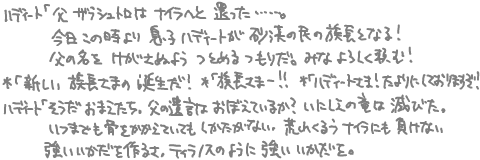 ハディート「父 ザラシュトロは ナイラへと 還った……。
今日この時より 息子 ハディートが 砂漠の民の族長となる!
父の名を けがさぬよう つとめるつもりだ。みな よろしく頼む!
*「新しい 族長さまの 誕生だ! *「族長さまー!! *「ハディートさま! たよりにしておりまするぞ!
ハディート「そうだ おまえたち。父の遺言は おぼえているか? いにしえの竜は 滅びた。
いつまでも骨をかかえていても しかたがない。荒れくるう ナイラにも 負けない
強いいかだを作るさ。ティラノスのように 強い いかだを。